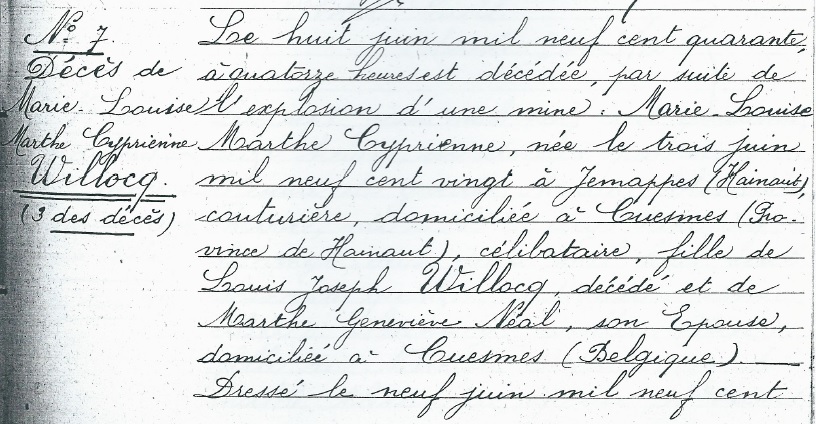 N° 7.
Décès de
Marie-Louise
Marthe Cyprienne
Willocq.
(3 des décès)
Le huit juin mil neuf cent quarante,
à quatorze heures est décédée, par suite de
l'explosion d'une mine : Marie-Louise
Marthe Cyprienne, née le trois juin
mil neuf cent vingt à Jemappes (Hainaut),
couturière, domiciliée à Cuesmes (Pro-
vince de Hainaut), célibataire, fille de
Louis Joseph Willocq, décédé et de
Marthe Geneviève Néal, son Epouse,
domiciliée à Cuesmes (Belgique)
Dressé le neuf juin mil neuf cent